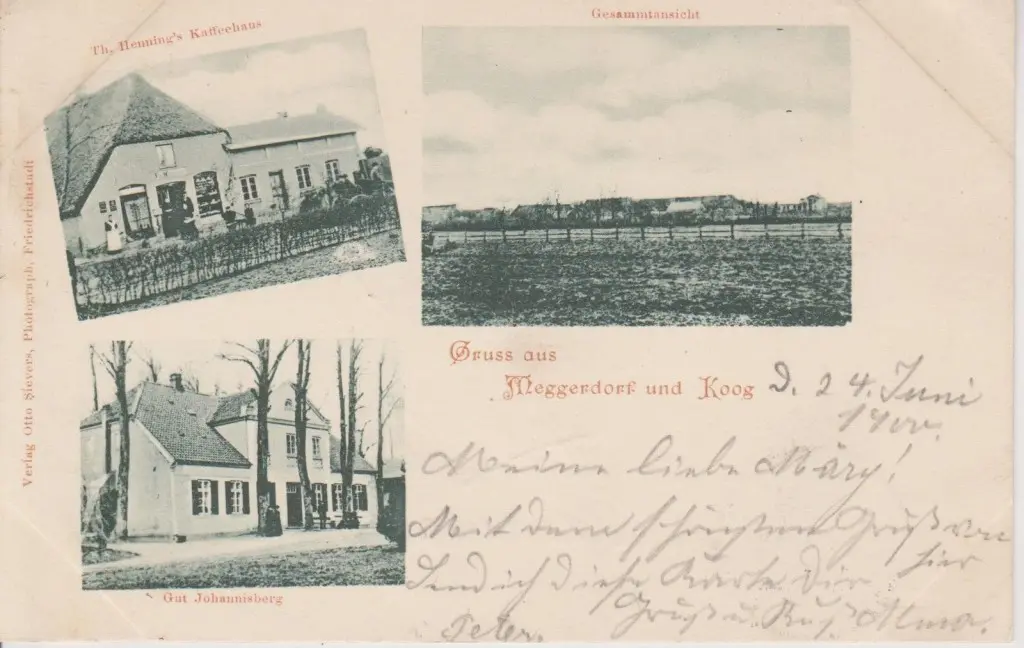 Th. Henning's Kaffeehaus
Gesammtansicht
Verlag Otto Sievers, Photograph, Friedrichstadt
Gruss aus
Meggerdorf und Koog
D. 24. Juni
1900.
Meine liebe Märy!
Mit dem schönsten Gruß von
hier
send ich diese Karte Dir
Gruß u. Kuß Alma.
Peter.
Gut Johannisberg